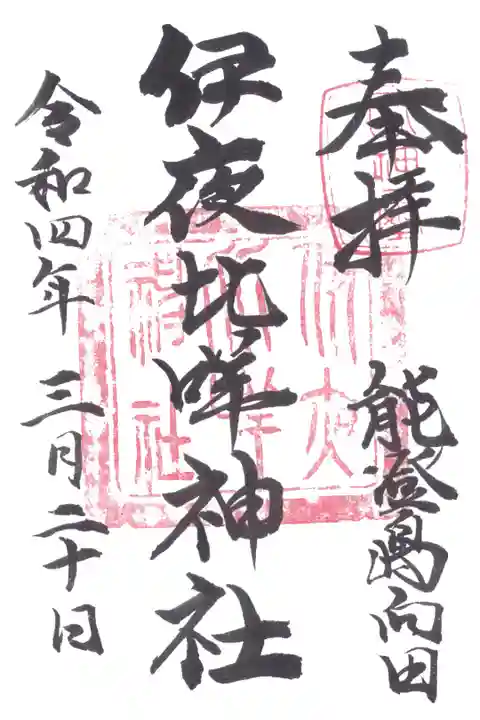 奉拝
能登島向田
伊夜比咩神社
令和四年三月二十日